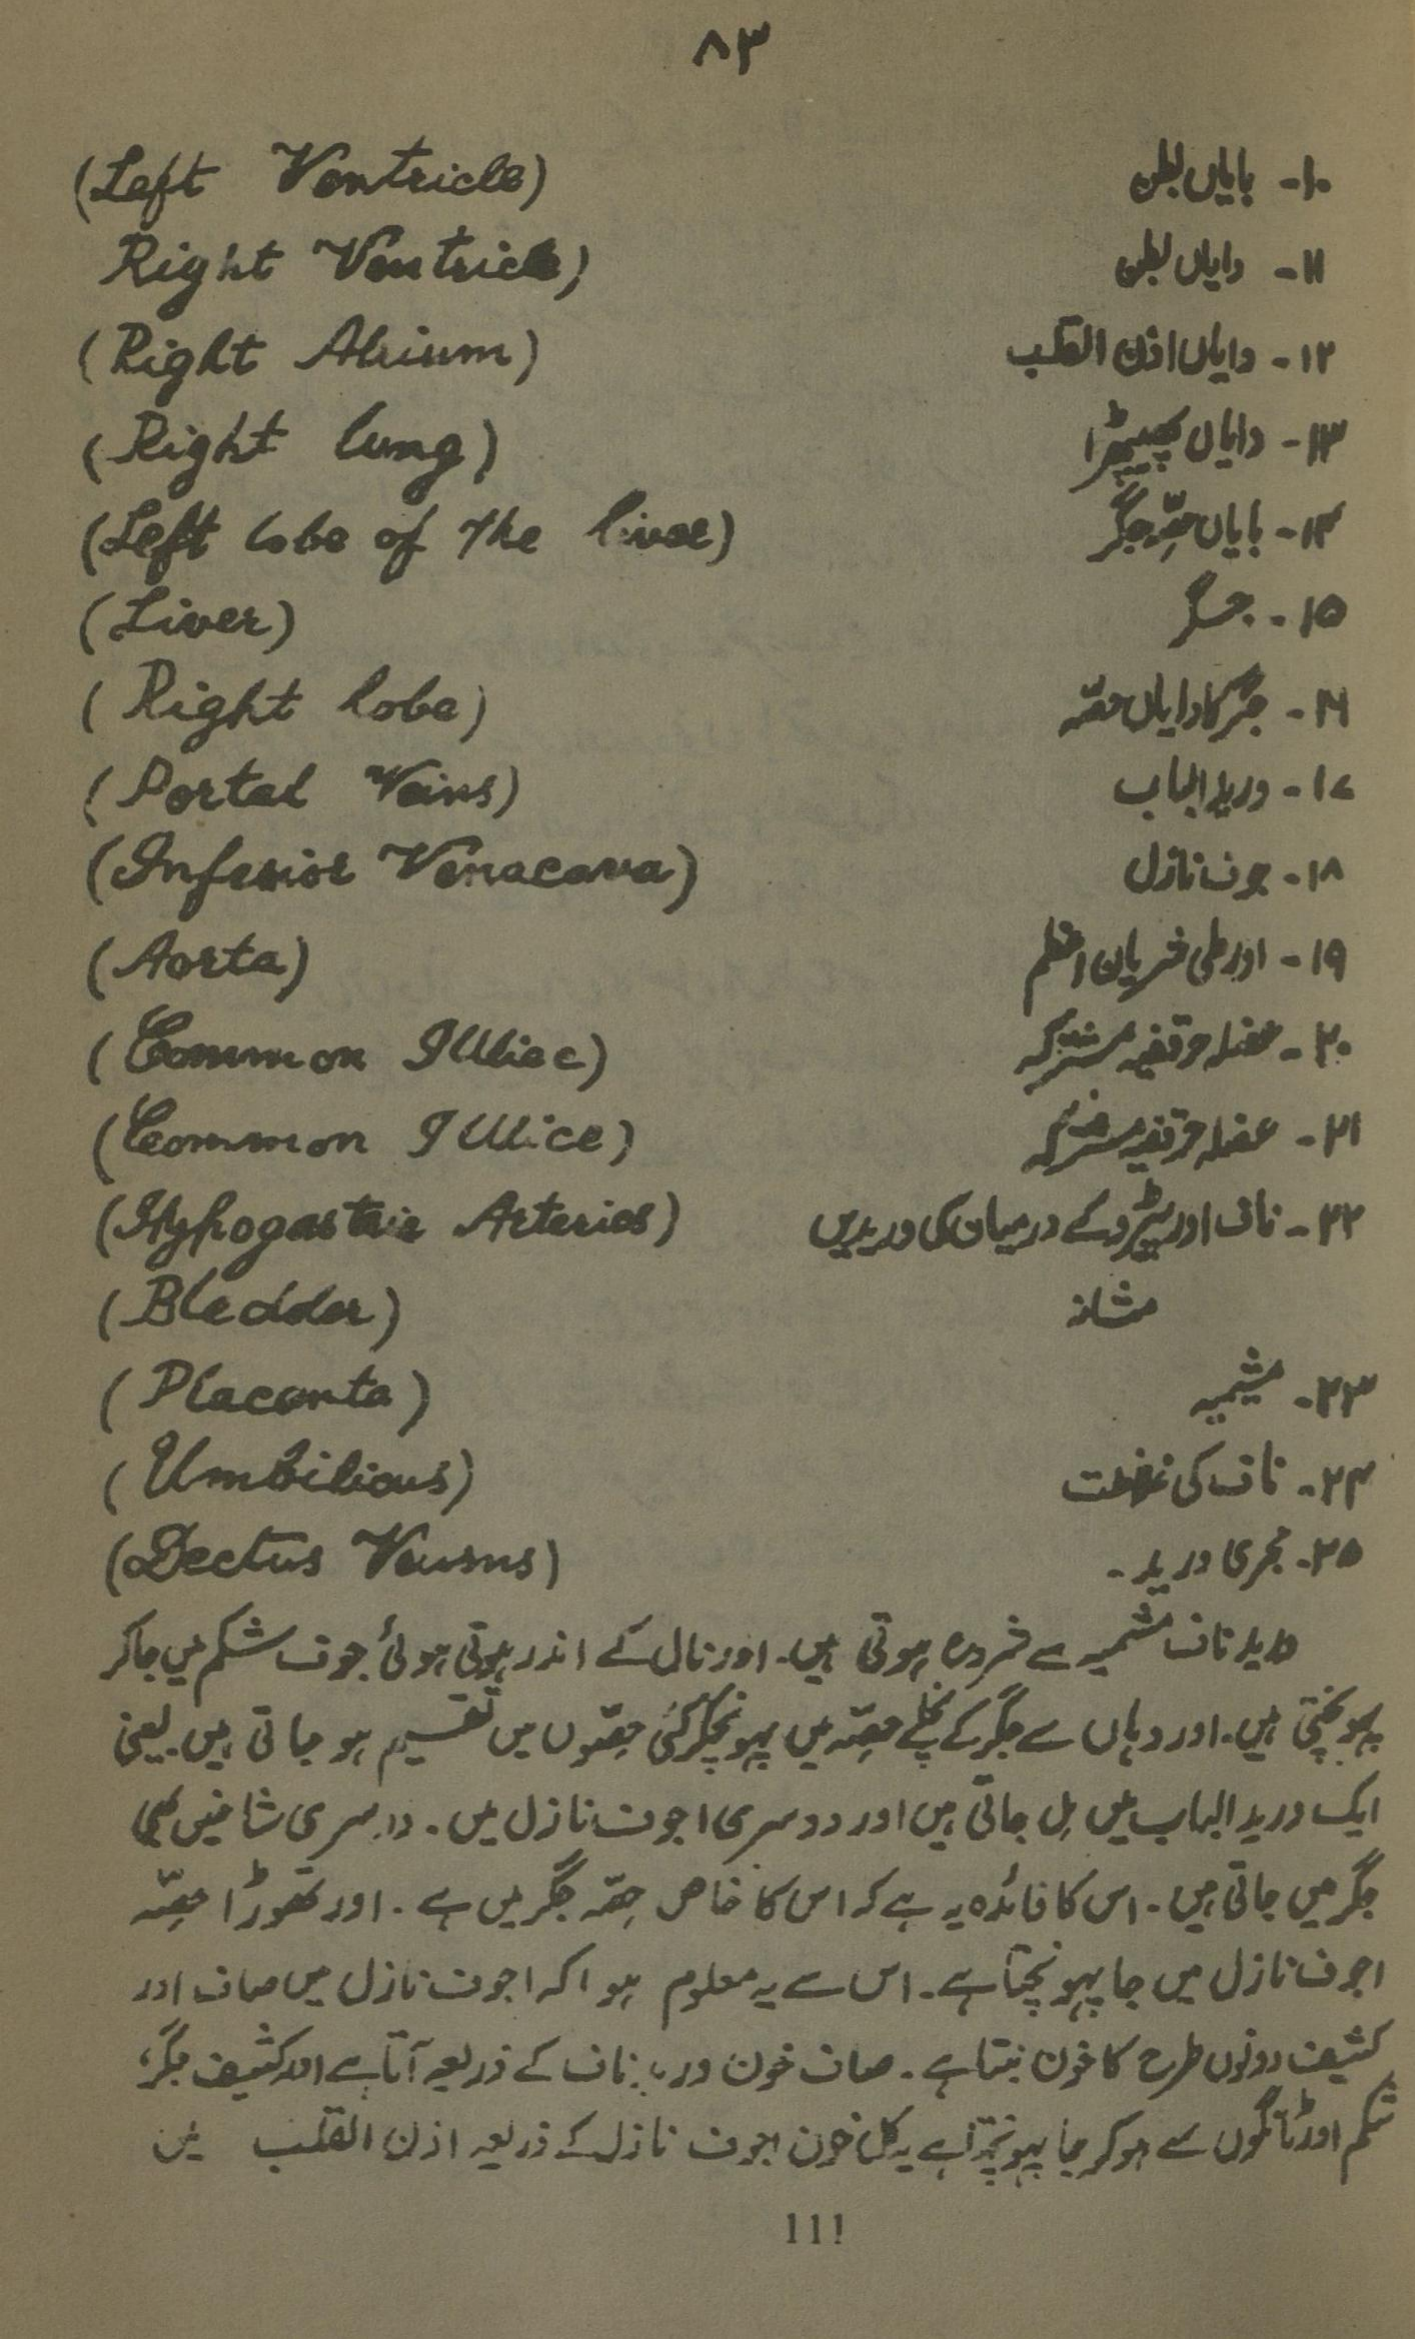 ۸۳
۱۰۔ بایاں بطن (Left Ventricle)
۱۱۔ دایاں بطن Right Ventricle)
۱۲۔ دایاں اذن القلب (Right Atrium)
۱۳۔ دایاں پھیپھڑا (Right lung)
۱۴۔ بایاں حصّہ جگر (Left lobe of the liver)
۱۵۔ جگر (Liver)
۱۶۔ جگر کا دایاں حصّہ (Right lobe)
۱۷۔ ورید الباب (Portal Veins)
۱۸۔ جوف نازل (Inferior Venacava)
۱۹۔ اورطی شریان اعظم (Aorta)
۲۰۔ عضلہ حرقفیہ مشترکہ (Common Illiac)
۲۱۔ عضلہ حرقفیہ مشترکہ (Common Illice)
۲۲۔ ناف اور پیڑو کے درمیان کی وریدیں (Hypogastric Arteries)
مثانہ (Bledder)
۲۳۔ مشیمیہ (Placenta)
۲۴۔ ناف کی (Umbilicus)
۲۵۔ مجری ورید۔ (Dectus Veusns)
ورید ناف مشیمیہ سے شروع ہوتی ہیں۔ اور نال کے اندر ہوتی ہوئی جوف شکم میں جا کر
پہونچتی ہیں۔ اور وہاں سے جگر کے نچلے حصّہ میں پہونچکر کئی حصّوں میں تقسیم ہو جاتی ہیں یعنی
ایک ورید الباب میں مل جاتی ہیں اور دوسری اجوف نازل میں۔ دوسری شاخیں بھی
جگر میں جاتی ہیں۔ اس کا فائدہ یہ ہے کہ اس کا خاص حصّہ جگر میں ہے۔ اور تھوڑا حصّہ
اجوف نازل میں جا پہونچتا ہے۔ اس سے یہ معلوم ہوا کہ اجوف نازل میں صاف اور
کثیف دونوں طرح کا خون بنتا ہے۔ صاف خون ورید ناف کے ذریعہ آتا ہے اور کثیف جگر،
شکم اور ٹانگوں سے ہو کر جا پہونچتا ہے یہ کل خون اجوف نازل کے ذریعہ اذن القلب میں
111